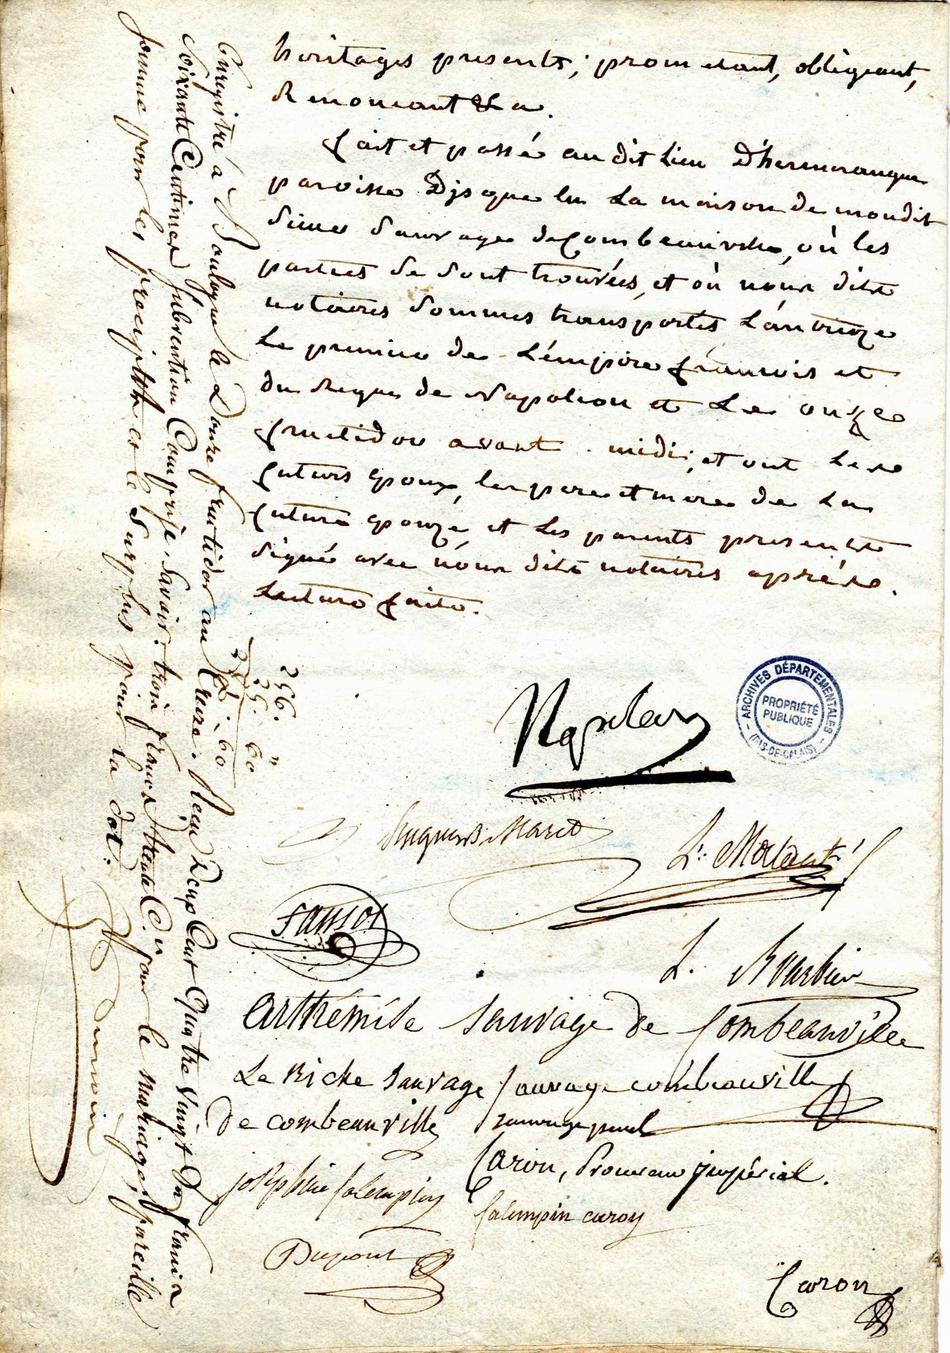 héritages presents; prometant, obligeant,
Renoncant &a.
fait et passé audit Lieu D'hermarangue
paroisse Disque en La maison de mondit
Sieur Sauvage de Combeauville, où les
parties Se Sont trouvées, et où nous dits
notaires Sommes transportés L'an treize
Le premier de L'émpire françois et
du Regne de Napoléon et Le onze
fructidor avant midi, et ont Les
futurs époux, les pere et mere de La
future epouze et Les parents presents
Signé avec nous dits notaires après
Lecture faite.
Napoleon
Hugues B. Maret
L. Bourbier
Arthémise Sauvage de Combeauville
Le Riche Sauvage
De combeauville
Sauvage combeauville
Caron, Procureur impérial.
josephine salempin
salempin caron
Dupont
Caron
ARCHIVES DÉPARTEMENTALES
PROPRIÉTÉ
PUBLIQUE
(PAS-DE-CALAIS)
256. "
25. 60
281. 60
Enregistré à Boulogne le Douze fructidor an treize. Reçu Deux Cent Quatre Vingt Un francs
Soixante Centimes Subvention Comprise. Savoir: trois francs trente C. pour le mariage, pareille
somme pour les preciputs et le Surplus pour la dot.